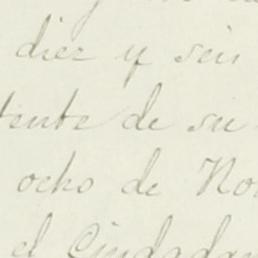 diez y seis
tente de su
ocho de No
el Ciudadan